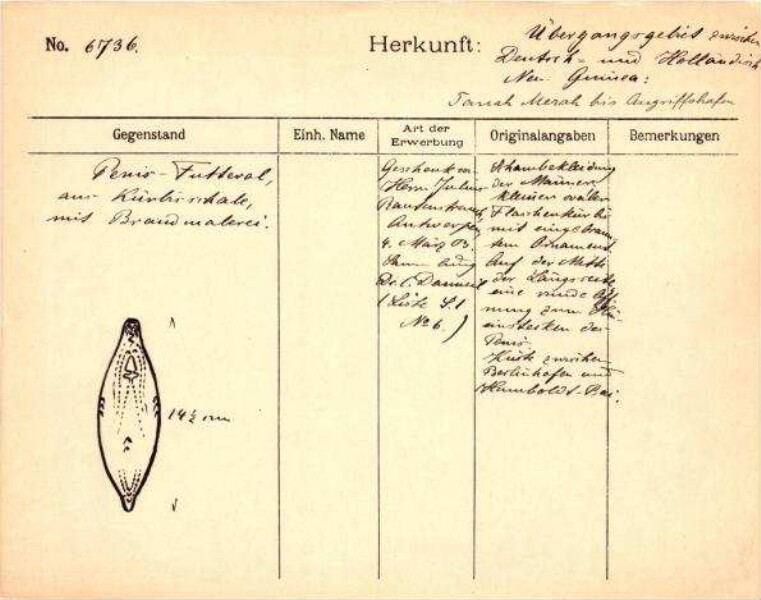 No. 6736.
Herkunft: Übergangsgebiet zwischen
Deutsch- und Holländisch
Neu Guinea:
Tanah Merah bis Angriffshafen
Gegenstand
Einh. Name
Art der
Erwerbung
Originalangaben
Bemerkungen
Penis-Futteral,
aus Kürbisschale,
mit Brandmalerei.
14½ cm
Geschenk von
Herrn Julius
Rautenstrauch,
Antwerpen,
4. März 03.
Sammlung
Dr.
(Liste S. 1
No 6.)
Schambekleidung
der Männer
kleiner ovaler
Flaschenkürbis
mit eingebrann-
tem Ornament
Auf der Mitte
der Längsseite
eine runde Öff-
nung zum Hi-
einstecken des
Penis.
Küste zwischen
Berlinhafen und
Humboldt-Bai.